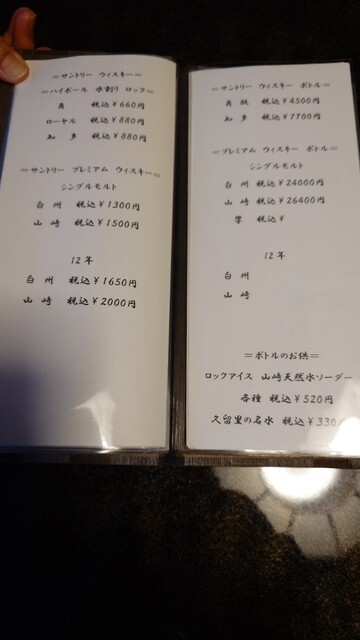 ＝サントリー ウィスキー＝
＝ハイボール 水割り ロック＝
角 税込￥660円
ローヤル 税込￥880円
知多 税込￥880円
＝サントリー プレミアム ウィスキー＝
シングルモルト
白州 税込￥1300円
山崎 税込￥1500円
12年
白州 税込￥1650円
山崎 税込￥2000円
＝サントリー ウィスキー ボトル＝
角瓶 税込￥4500円
知多 税込￥7700円
＝プレミアム ウィスキー ボトル＝
シングルモルト
白州 税込￥24000円
山崎 税込￥26400円
響 税込￥
12年
白州
山崎
＝ボトルのお供＝
ロックアイス 山崎天然水ソーダー
各種 税込￥520円
久留里の名水 税込￥330円